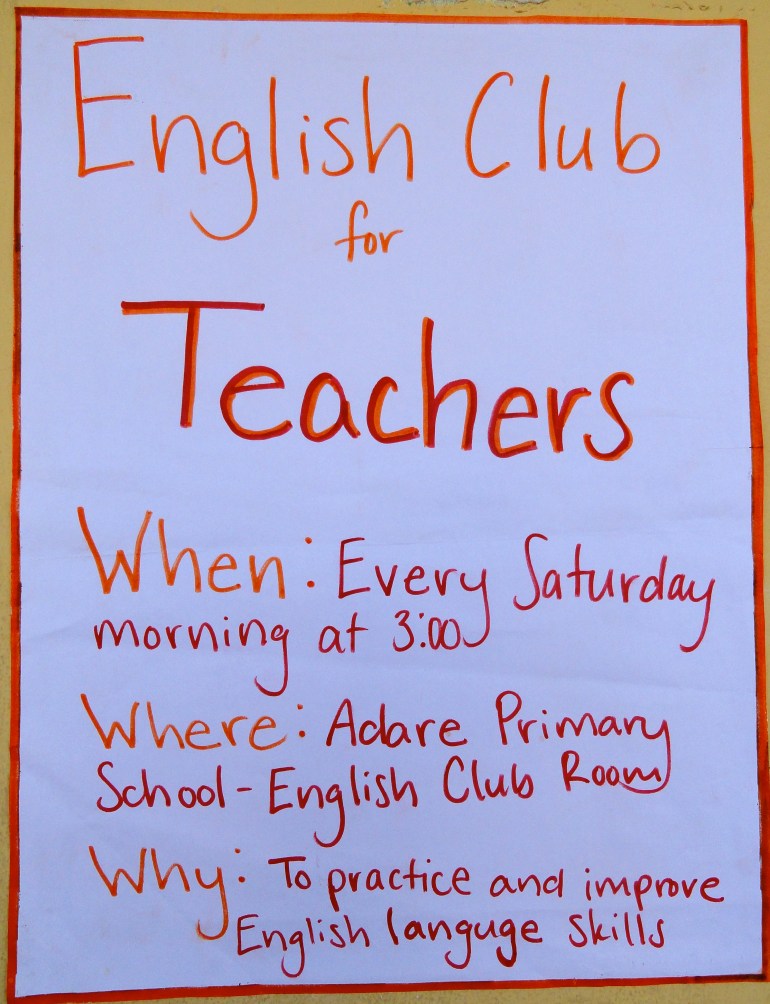 English Club
for
Teachers
When: Every Saturday
morning at 3:00
Where: Adare Primary
School - English Club Room
Why: To practice and improve
English languge skills